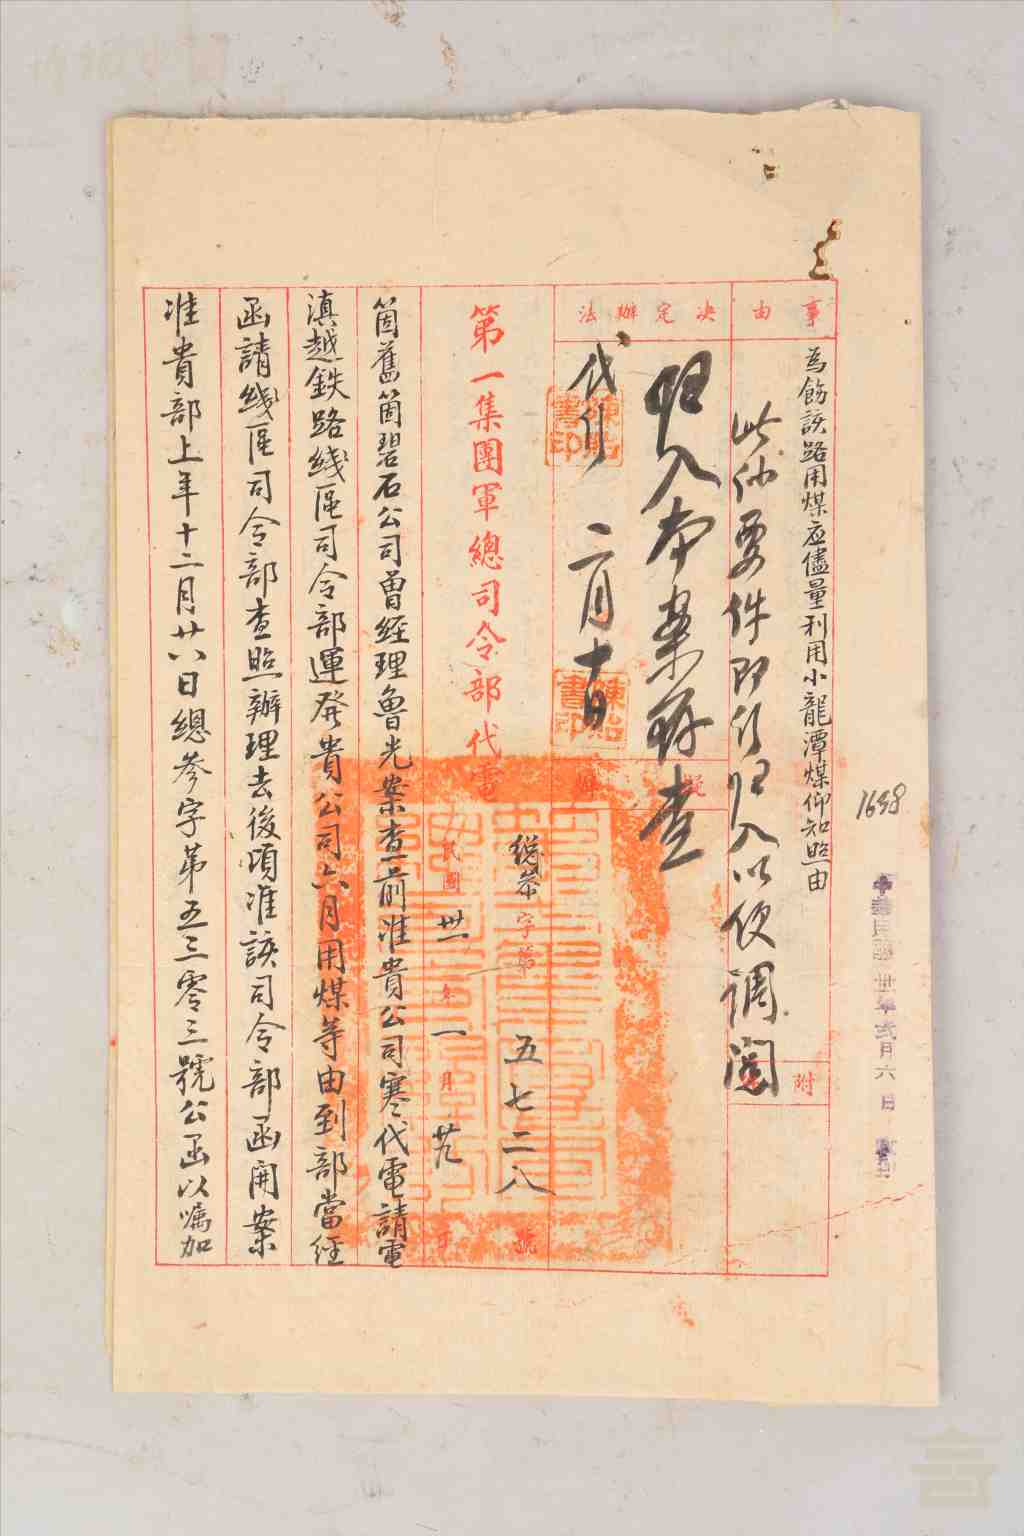 1698
中華民國卅一年弍月六日
事由
為飭該路用煤应儘量利用小龍潭煤仰知照由
附
决定辦法
此件要件即行归入以便調閱
归入本案存查
二月十日
擬辦
第一集團軍總司令部代電
總参字第五七二八號
民國卅一年一月
箇舊箇碧石公司曽經理魯光案查前准貴公司寒代電請電
滇越鉄路綫區司令部運発貴公司六月用煤等由到部當經
函請綫區司令部查照辦理去後頃准該司令部函開案
准貴部上年十二月廿八日總參字苐五三零三號公函以嘱加